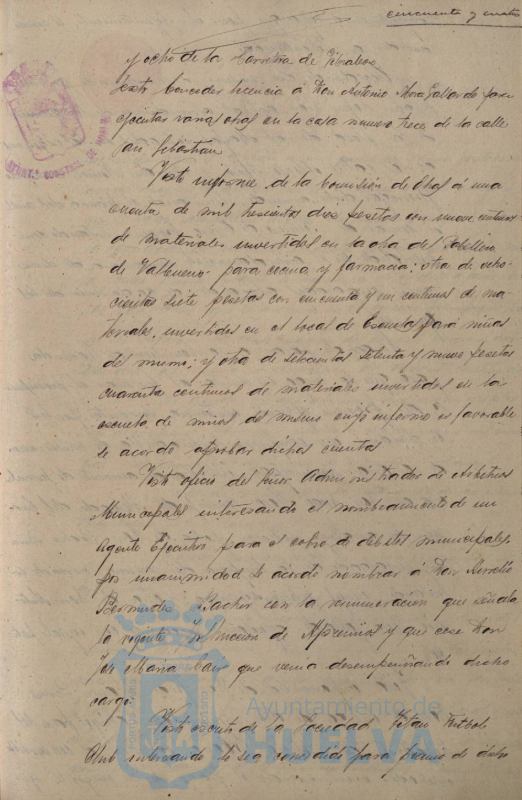 cincuenta y cuatro
y ocho de la Carretera de Gibraleon
conceder licencia á Don Antonio Mora Gallardo para
ejecutar varias obras en la casa numero trece de la calle
San Sebastian.
Visto informe de la Comisión de Obras á una
cuenta de mil trescientas dos pesetas con nueve centimos
de materiales invertidos en la obra del Pabellon
de para cocina y farmacia; otra de ocho-
cientas siete pesetas con cincuenta y un centimos de ma-
teriales, invertidos en el local de Escuelas para niñas
del mismo; y otra de setecientas setenta y nueve pesetas
cuarenta centimos de materiales invertidos en la
escuela de niños del mismo cuyo informe es favorable
se acordo aprobar dichas cuentas
Visto oficio del Señor Administrador de Arbitrios
Municipales interesando el nombramiento de un
Agente Ejecutivo para el cobro de debitos municipales,
por unanimidad se acordo nombrar á Don
Bermudez con la remuneración que señala
la vigente Instrucción de Apremios y que cese Don
José Maria que venia desempeñando dicho
cargo.
Visto escrito de la Sociedad Titan Football
Club interesando le sea concedido para premio de dicho
AYUNT.º CONSTNAL DE HUELVA
Ayuntamiento de
HUELVA